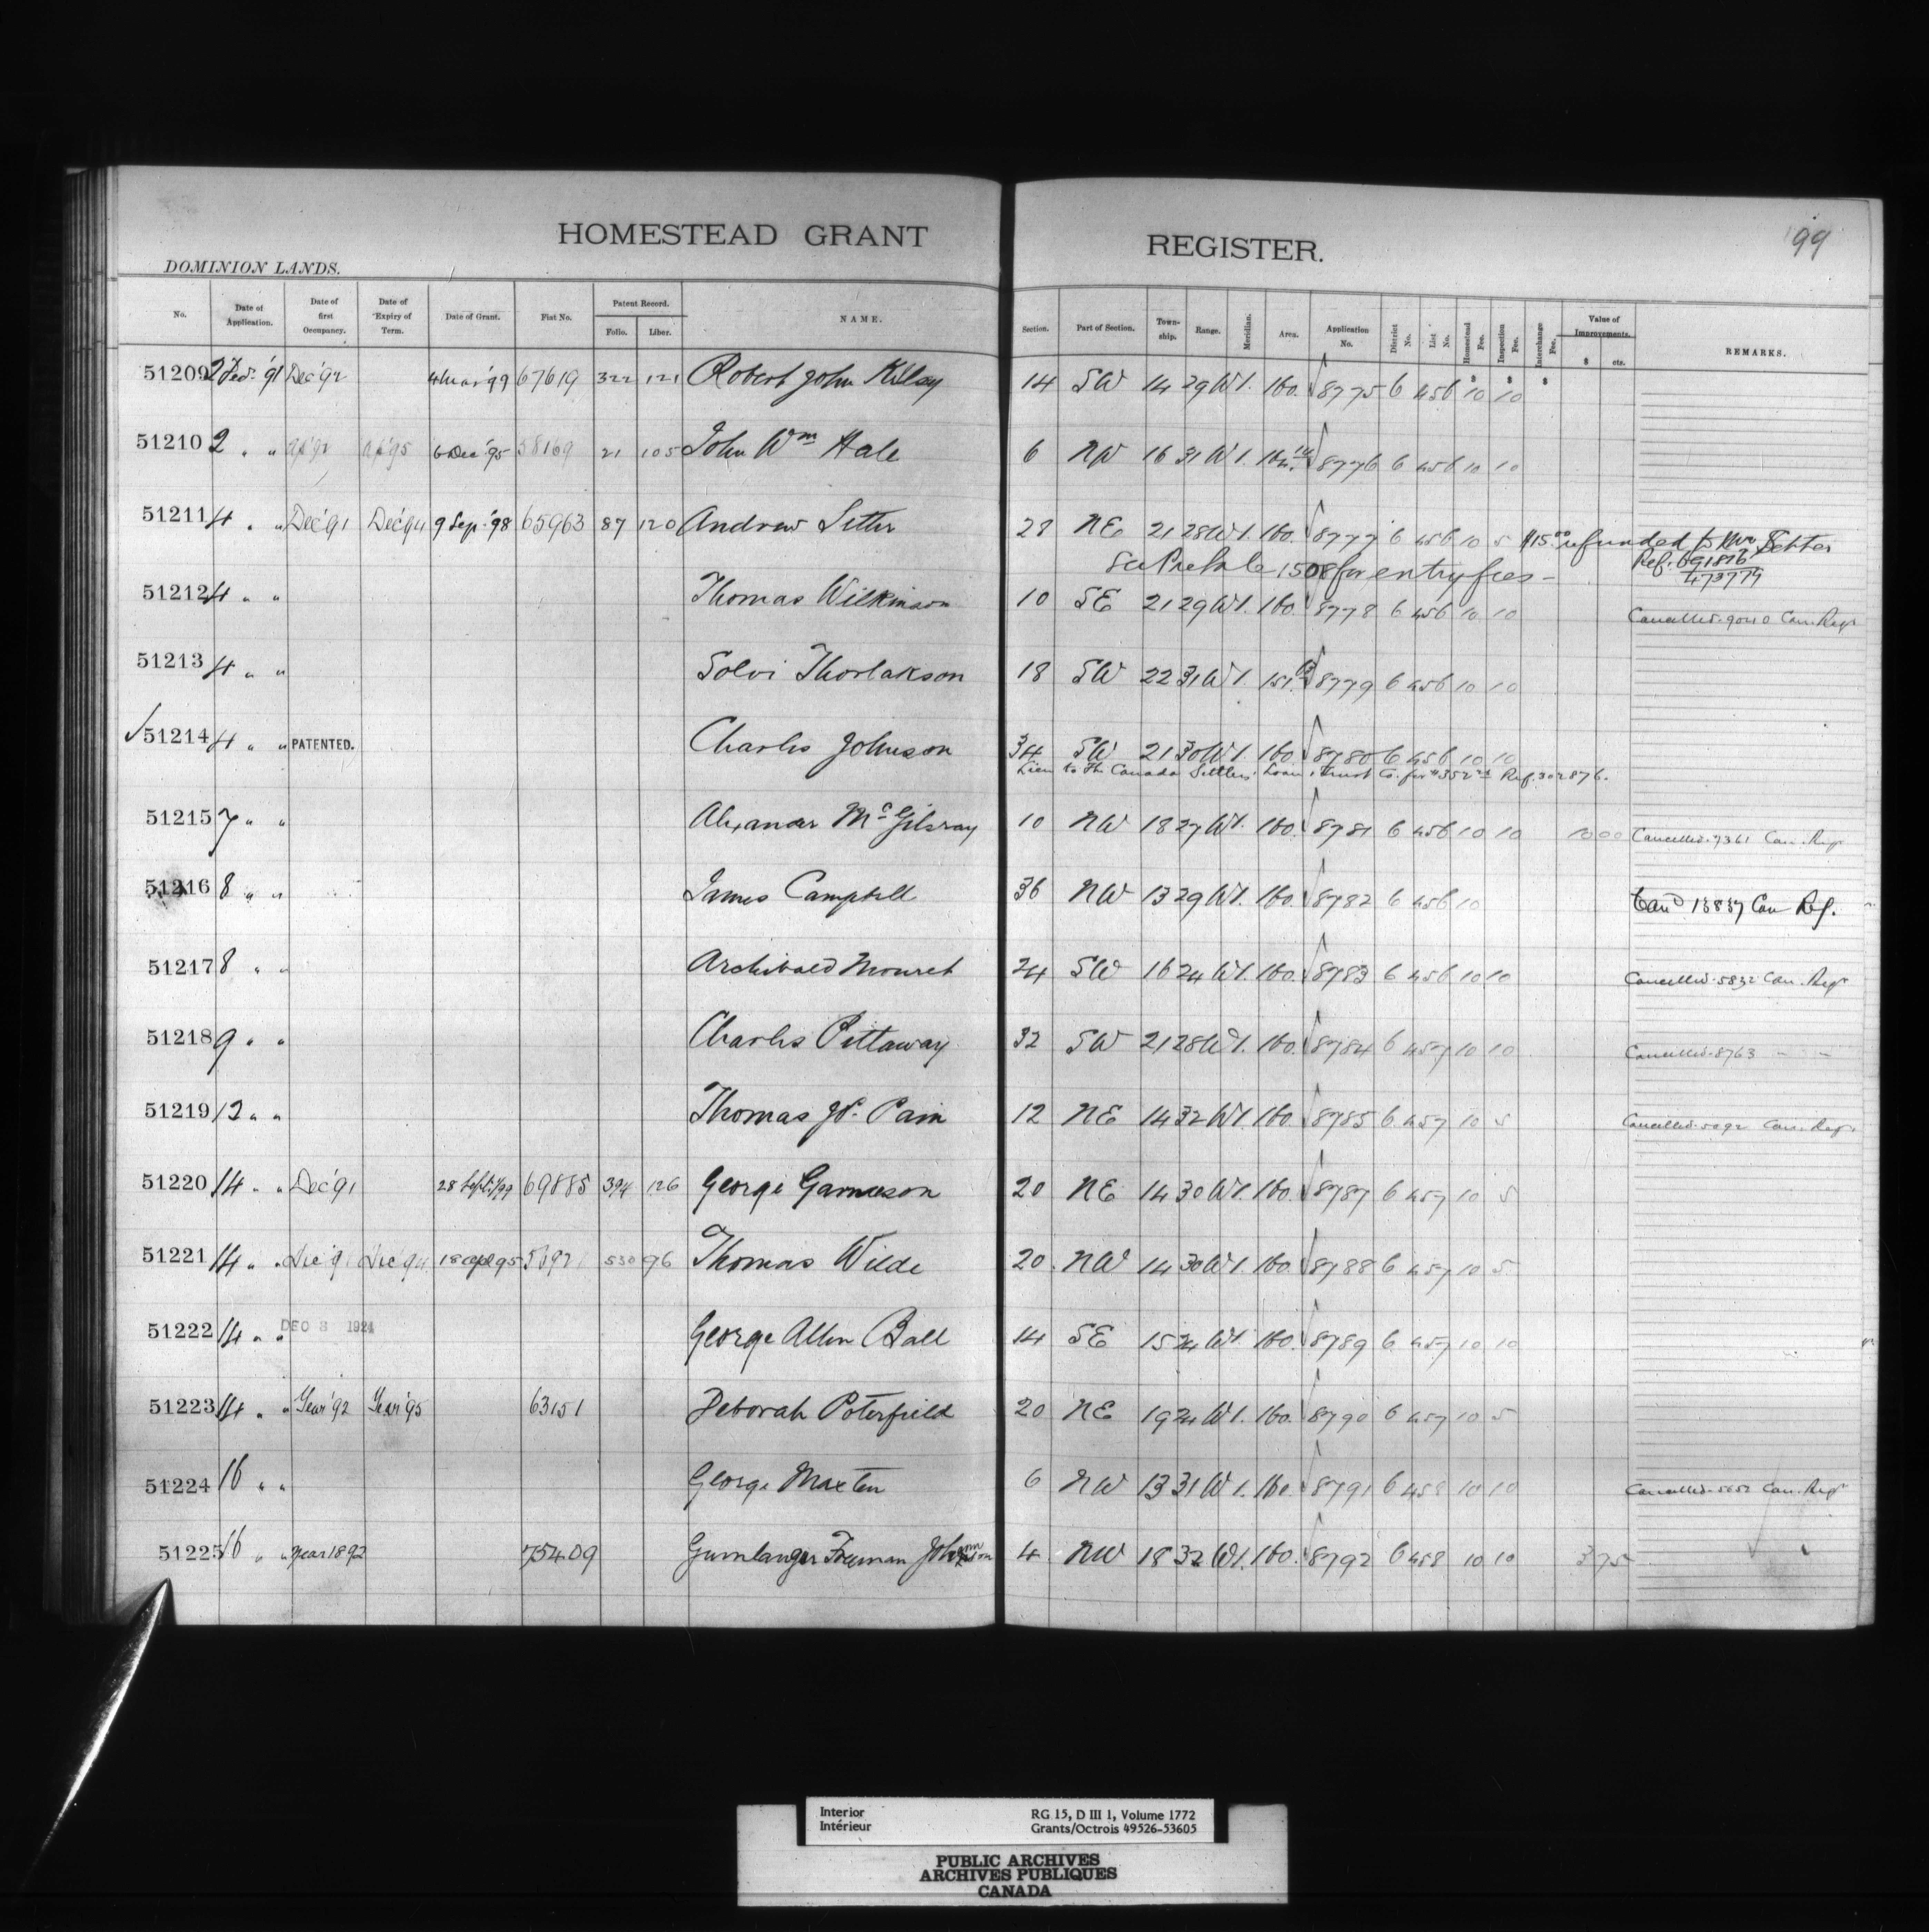 HOMESTEAD GRANT REGISTER.
99
DOMINION LANDS.
No. Date of Application. Date of first Occupancy. Date of Expiry of Term. Date of Grant. Fiat No. Patent Record. Folio. Liber. NAME. Section. Part of Section. Township. Range. Meridian. Area. Application No. District No. List No. Homestead Fee. Inspection Fee. Interchange Fee. Value of Improvements. $ cts. REMARKS.
51209 2 Feb. '91 Dec '92 4 Mar '99 67619 322 121 Robert John Kelsy 14 SW 14 29 W1. 160. 8775 6 456 10 10
51210 2 " " Ap '92 Ap '95 6 Dec '95 58169 21 105 John Wm Hale 6 NW 16 31 W1. 8776 6 456 10 10
51211 4 " " Dec '91 Dec '94 9 Sep. '98 65963 87 120 Andrew Setter 28 NE 21 28 W1. 160. 8777 6 456 10 5 $15.00 refunded to Mr Setter
1508 for entry fees - Ref. 691816
473779
51212 4 " " Thomas Wilkinson 10 SE 21 29 W1. 160. 8778 6 456 10 10 Cancelled. 9040 Can. Regr
51213 4 " " Solvi Thorlakson 18 SW 22 31 W1 8779 6 456 10 10
51214 4 " " PATENTED. Charles Johnson 34 SW 21 30 W1. 160. 8780 6 456 10 10
Lien to The Canada Settlers Loan & Trust Co. for Ref. 302876.
51215 7 " " Alexander McGilvray 10 NW 18 27 W1. 160. 8781 6 456 10 10 10 00 Cancelled. 7361 Can. Regr
51216 8 " " James Campbell 36 NW 13 29 W1. 160. 8782 6 456 10 Cand 13837 Can Reg.
51217 8 " " Archibald Mouret 24 SW 16 24 W1. 160. 8783 6 456 10 10 Cancelled. 5832 Can. Regr
51218 9 " " Charles Pittaway 32 SW 21 28 W1. 160. 8784 6 457 10 10 Cancelled. 8763 " "
51219 12 " " Thomas Jos. Pain 12 NE 14 32 W1. 160. 8785 6 457 10 5 Cancelled. 5092 Can. Regr
51220 14 " " Dec '91 28 Sept. '99 69885 394 126 George Garmeson 20 NE 14 30 W1. 160. 8787 6 457 10 5
51221 14 " " Dec '91 Dec '94 18 Apl 95 530 96 Thomas Wilde 20 NW 14 30 W1. 160. 8788 6 457 10 5
51222 14 " " DEC 3 1924 George Allen Ball 14 SE 15 24 W1 160. 8789 6 457 10 10
51223 14 " " Year '92 Year '95 63151 Deborah Poterfield 20 NE 19 24 W1. 160. 8790 6 457 10 5
51224 16 " " George Maxten 6 NW 13 31 W1. 160. 8791 6 458 10 10 Cancelled. 5652 Can. Regr
51225 16 " " Year 1892 75409 Gunnlaugur Freeman Johnson 4 NW 18 32 W1. 160. 8792 6 458 10 10 375
Interior RG 15, D III 1, Volume 1772
Intérieur Grants/Octrois 49526-53605
PUBLIC ARCHIVES
ARCHIVES PUBLIQUES
CANADA